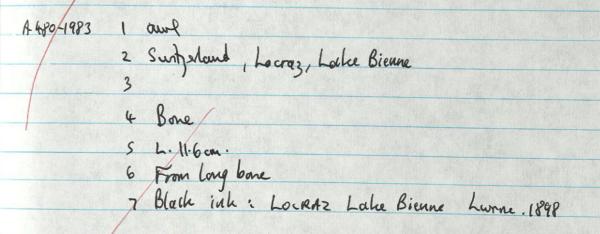 A480-1983 1 awl
2 Switzerland, Locraz, Lake Bienne
3
4 Bone
5 L. 11.6cm.
6 From long bone
7 Black ink: LOCRAZ Lake Bienne 1898